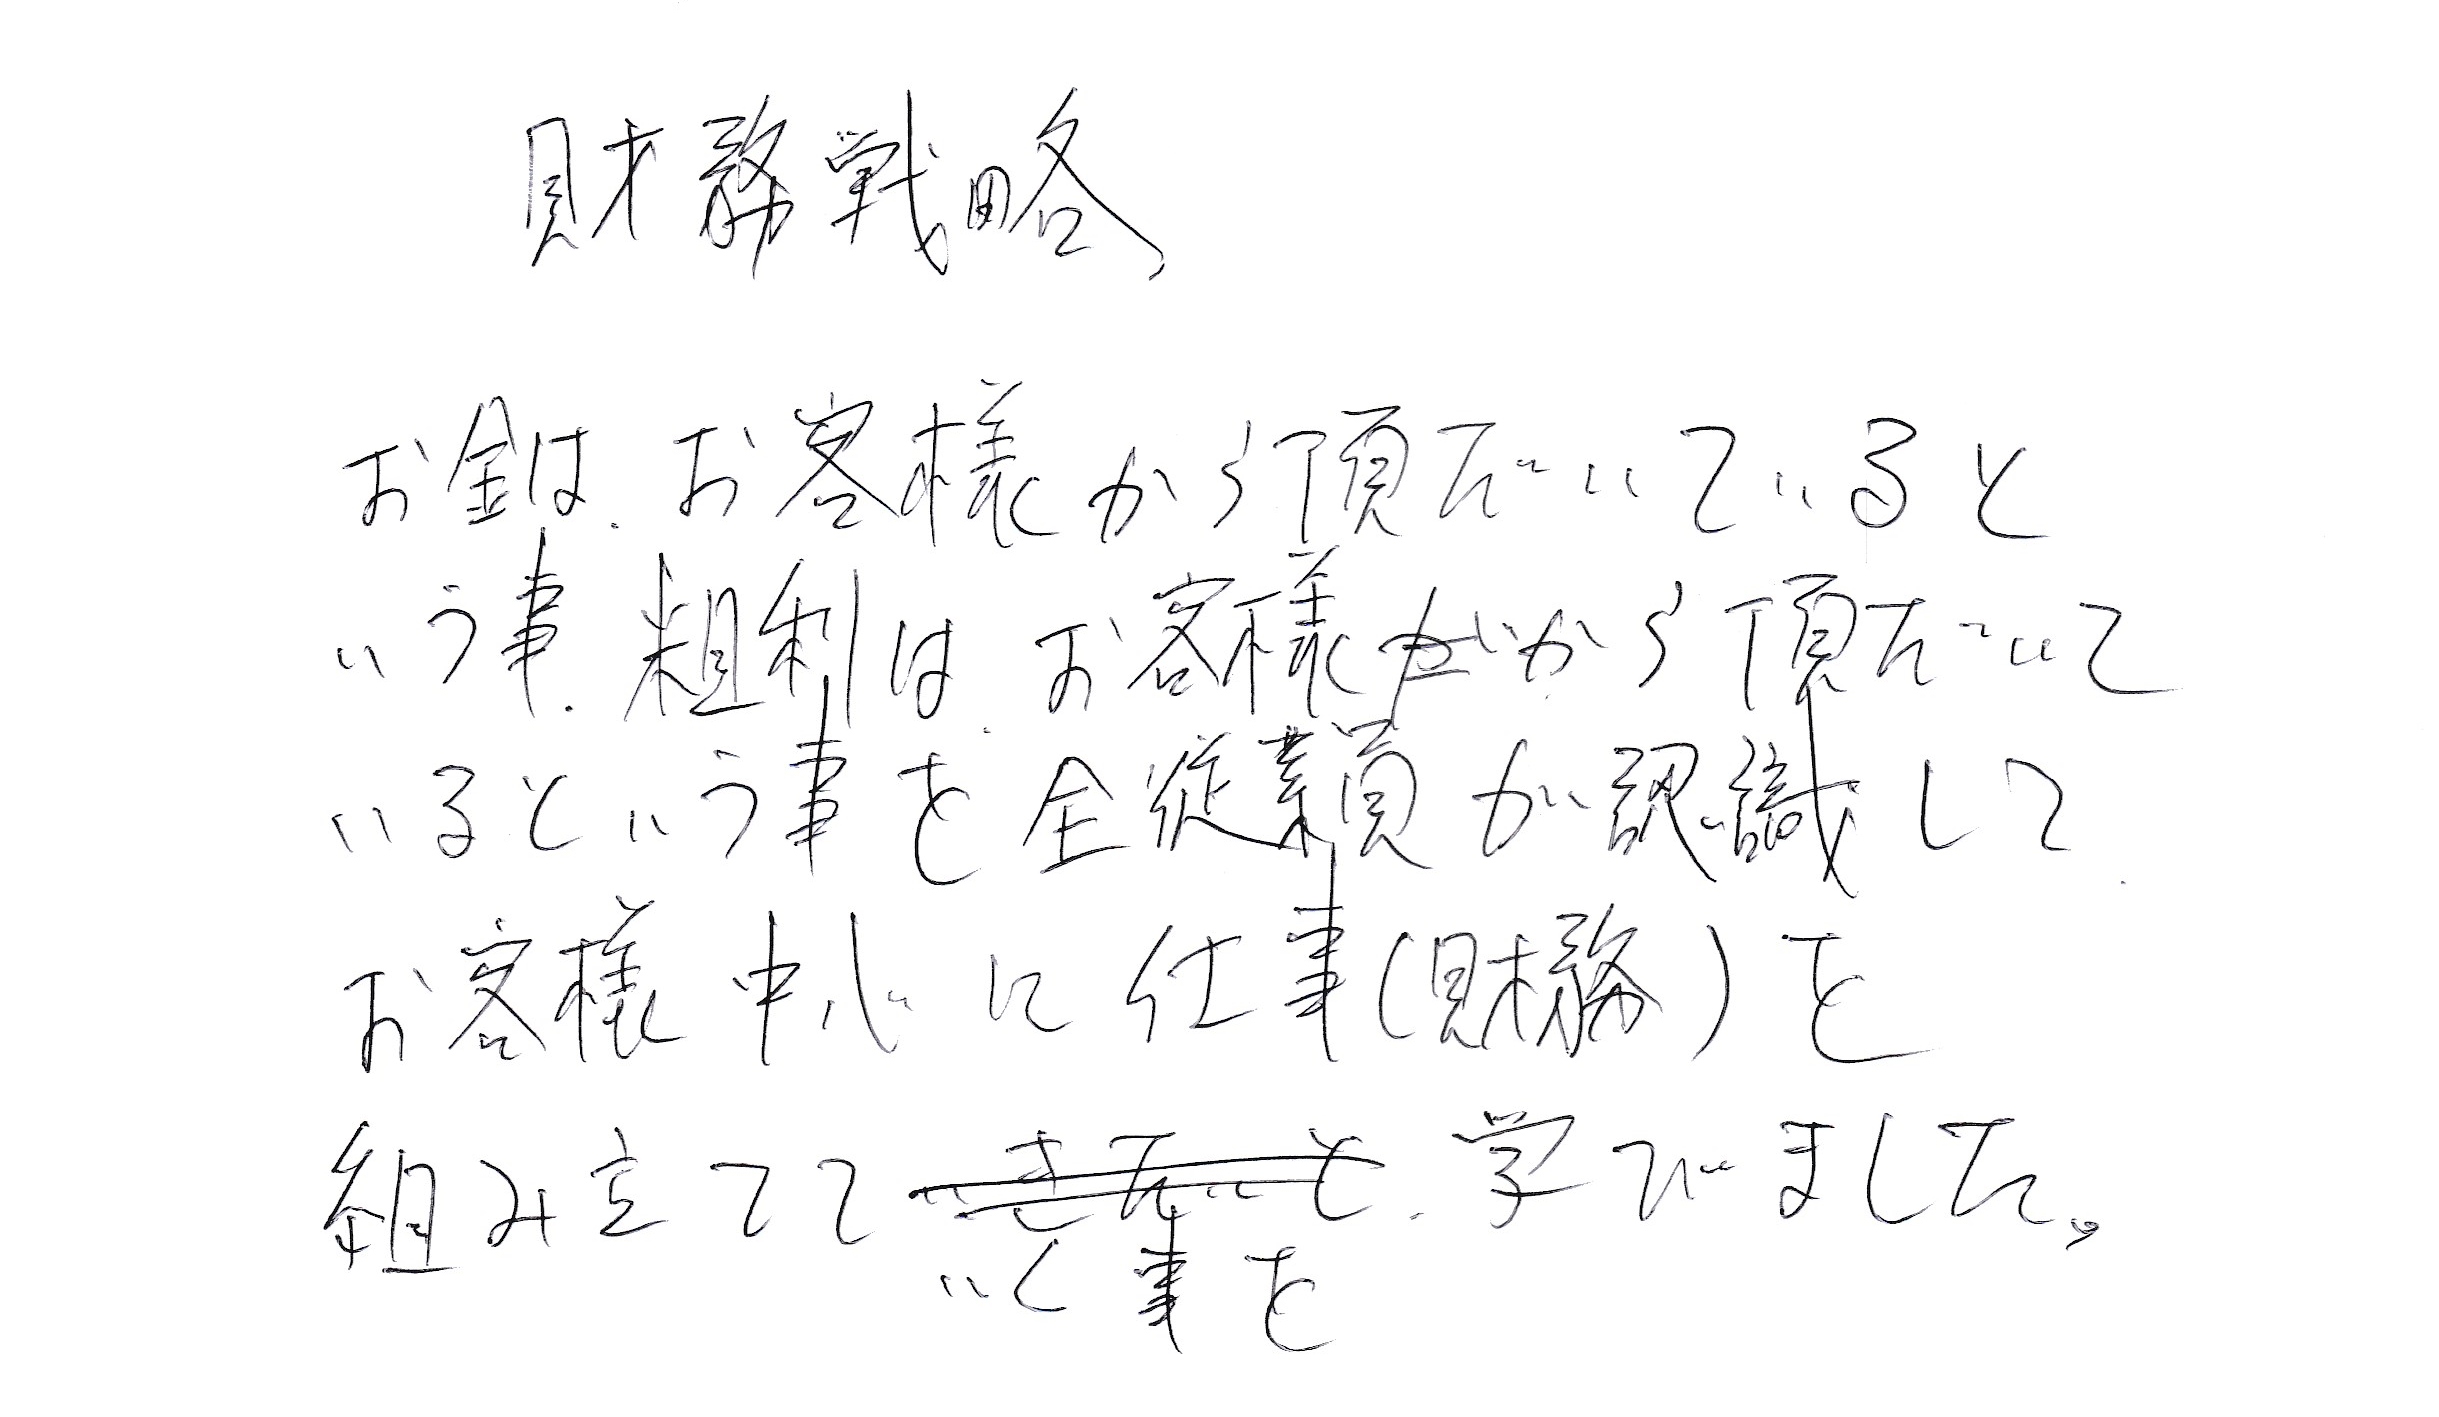 財務戦略
お金は、お客様から頂だいていると
いう事、粗利は、お客様から頂だいて
いるという事を全従業員が認識して、
お客様中心に仕事(財務)を
組み立てて 学びました。
いく事を